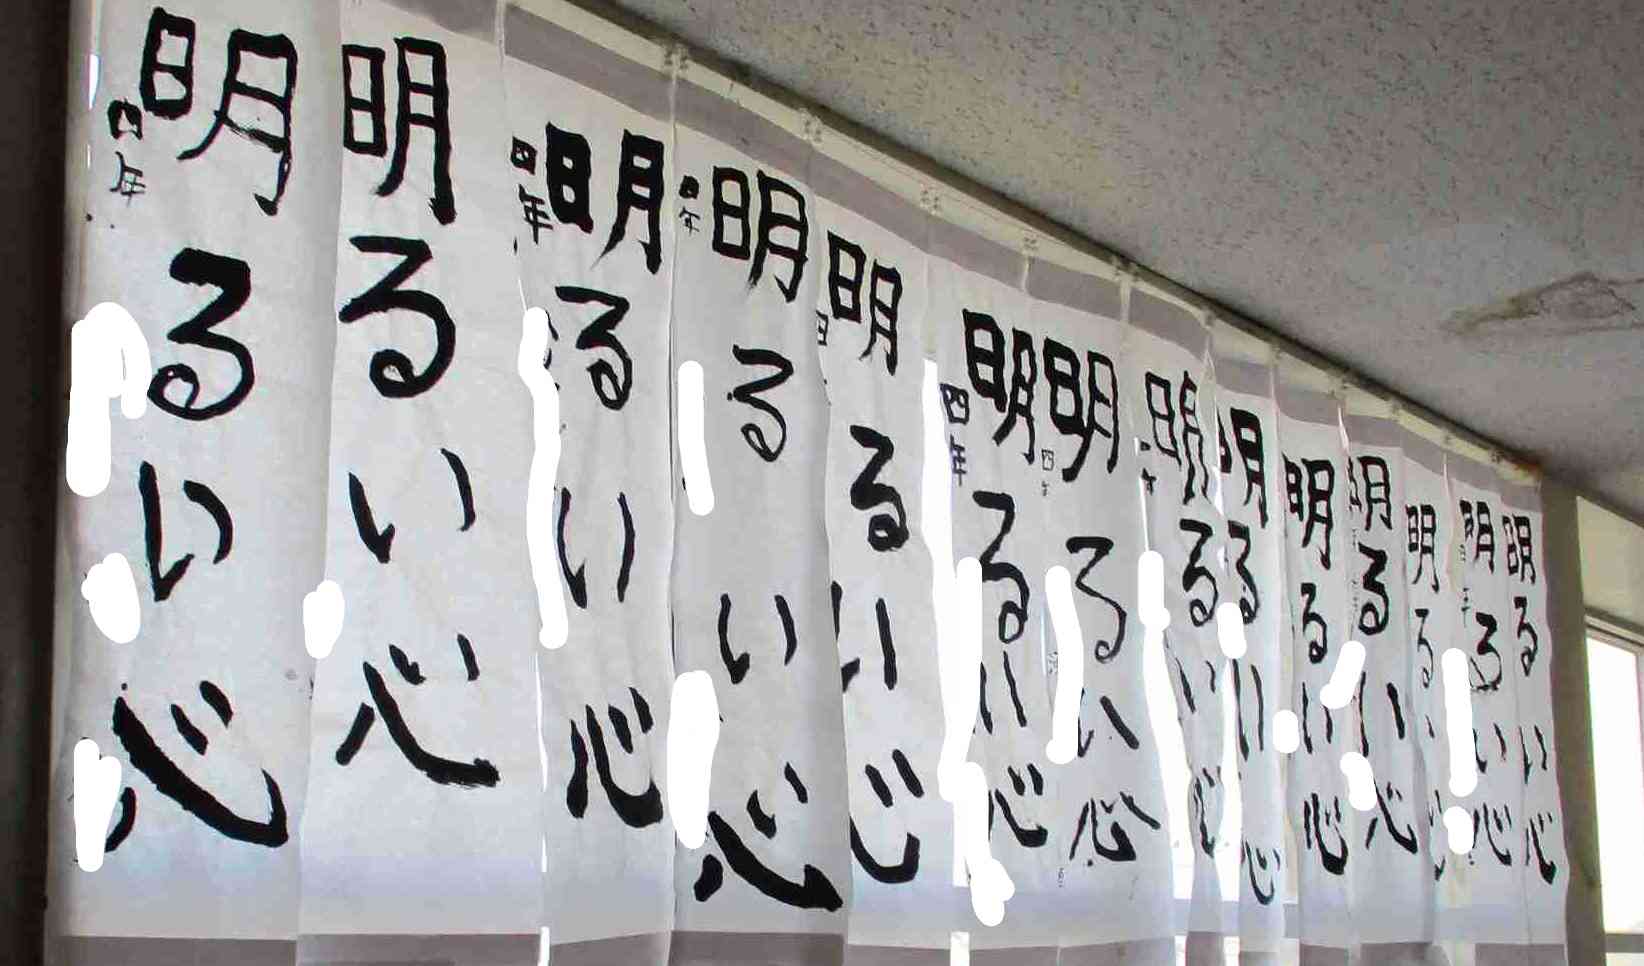 明るい心
四年
明るい心
明るい心
四年
明るい心
四年
明るい心
明るい心
四年
明るい心
四年
明るい心
明るい心
明るい心
明るい心
明るい心
明るい心
明るい心